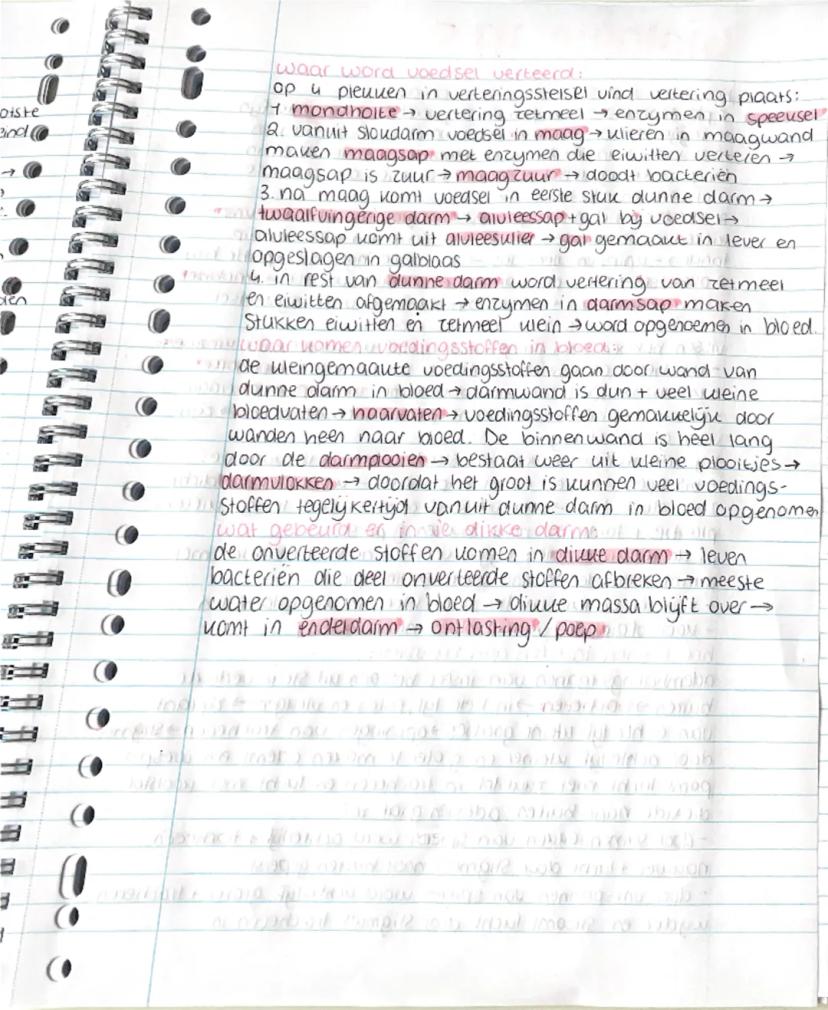 waar word voedsel verteerd:
op 4 plekken in verteringsstelsel vind vertering plaats:
1 mondholte → vertering zetmeel → enzymen in speeksel
2. vanuit slokdarm voedsel in maag → klieren in maagwand
maken maagsap met enzymen die eiwitten verteren →
maagsap is zuur → maagzuur → doodt bacteriën
3. na maag komt voedsel in eerste stuk dunne darm →
twaalfvingerige darm → alvleessap + gal bij voedsel →
alvleessap komt uit alvleesklier → gal gemaakt in lever en
opgeslagen in galblaas
4. in rest van dunne darm word vertering van zetmeel
en eiwitten afgemaakt → enzymen in darmsap maken
stukken eiwitten en zetmeel klein → word opgenomen in bloed.
waar komen voedingsstoffen in bloed:
de kleingemaakte voedingsstoffen gaan door wand van
dunne darm in bloed → darmwand is dun + veel kleine
bloedvaten → haarvaten → voedingsstoffen gemakkelijk door
wanden heen naar bloed. De binnenwand is heel lang
door de darmplooien → bestaat weer uit kleine plooitjes →
darmvlokken → doordat het groot is kunnen veel voedings-
stoffen tegelijkertijd vanuit dunne darm in bloed opgenomen
wat gebeurd er in de dikke darm:
de onverteerde stoffen komen in dikke darm → leven
bacteriën die deel onverteerde stoffen afbreken → meeste
water opgenomen in bloed → dikke massa blijft over →
komt in endeldarm → ontlasting / poep